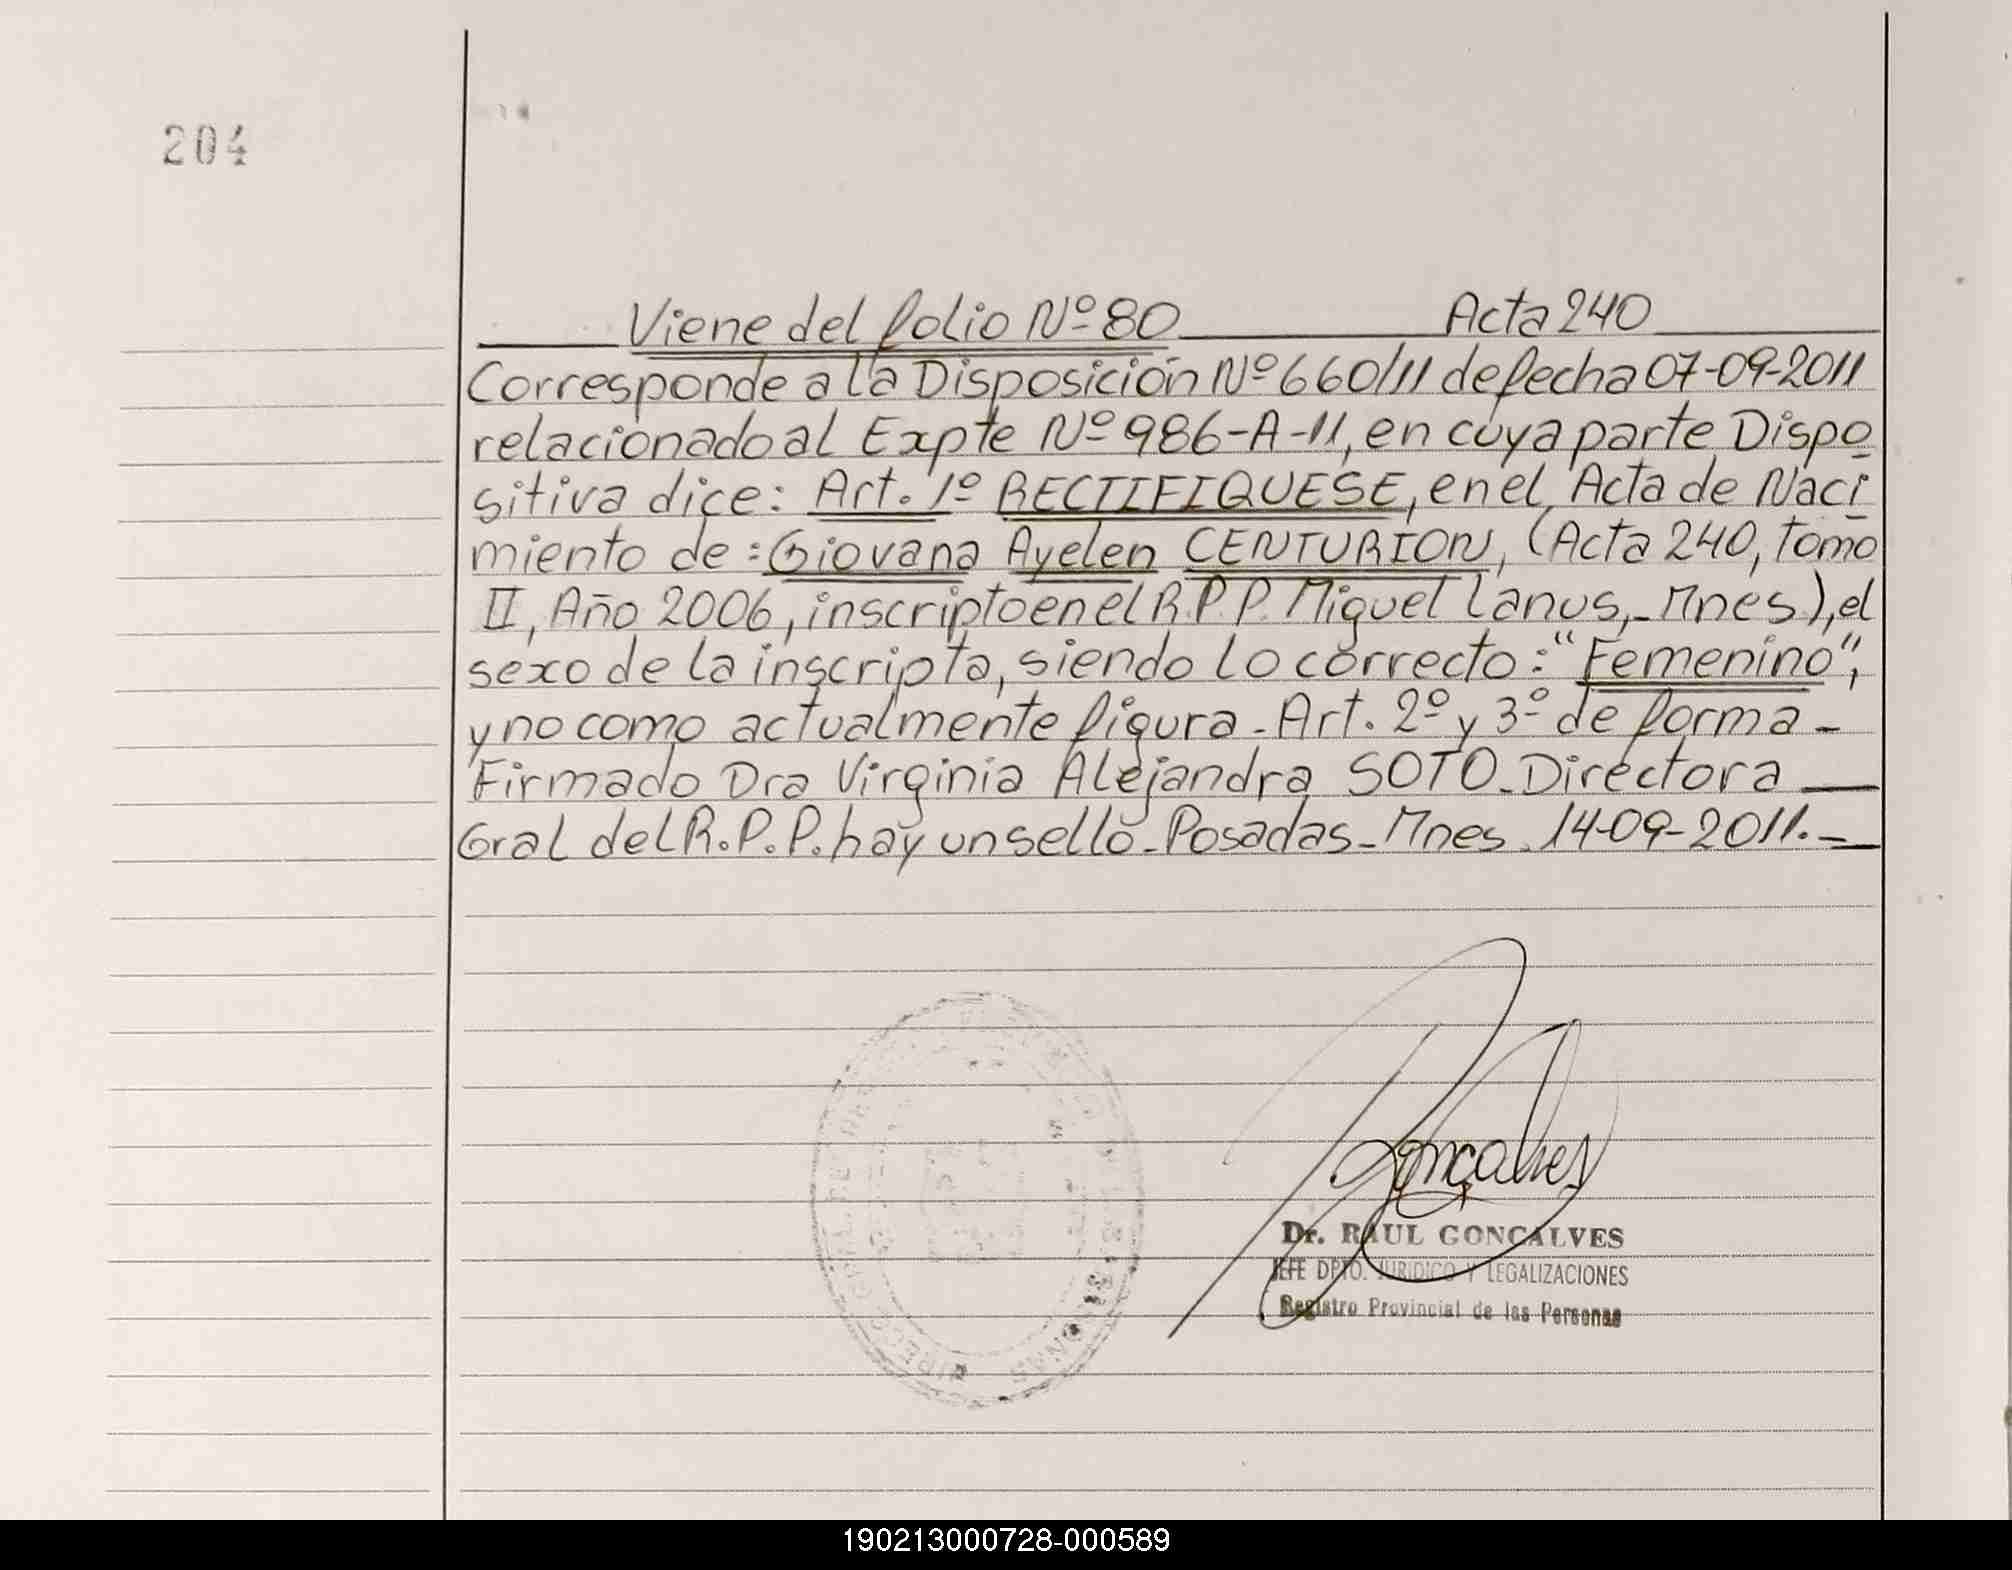 204
Viene del folio Nº 80 Acta 240
Corresponde a la Disposición Nº 660/11 de fecha 07-09-2011
relacionado al Expte Nº 986-A-11, en cuya parte Dispo
sitiva dice: Art. 1º RECTIFIQUESE, en el Acta de Naci
miento de: Giovana Ayelen CENTURION, (Acta 240, Tomo
II, Año 2006, inscripto en el R.P.P. Miguel Lanus,- Mnes), el
sexo de la inscripta, siendo lo correcto: "Femenino",
y no como actualmente figura - Art. 2º y 3º de forma -
Firmado Dra Virginia Alejandra SOTO - Directora
Gral del R.P.P. hay un sello - Posadas - Mnes. 14-09-2011.-
Gonçalves
Dr. RAUL GONCALVES
JEFE DPTO. JURIDICO Y LEGALIZACIONES
Registro Provincial de las Personas
190213000728-000589